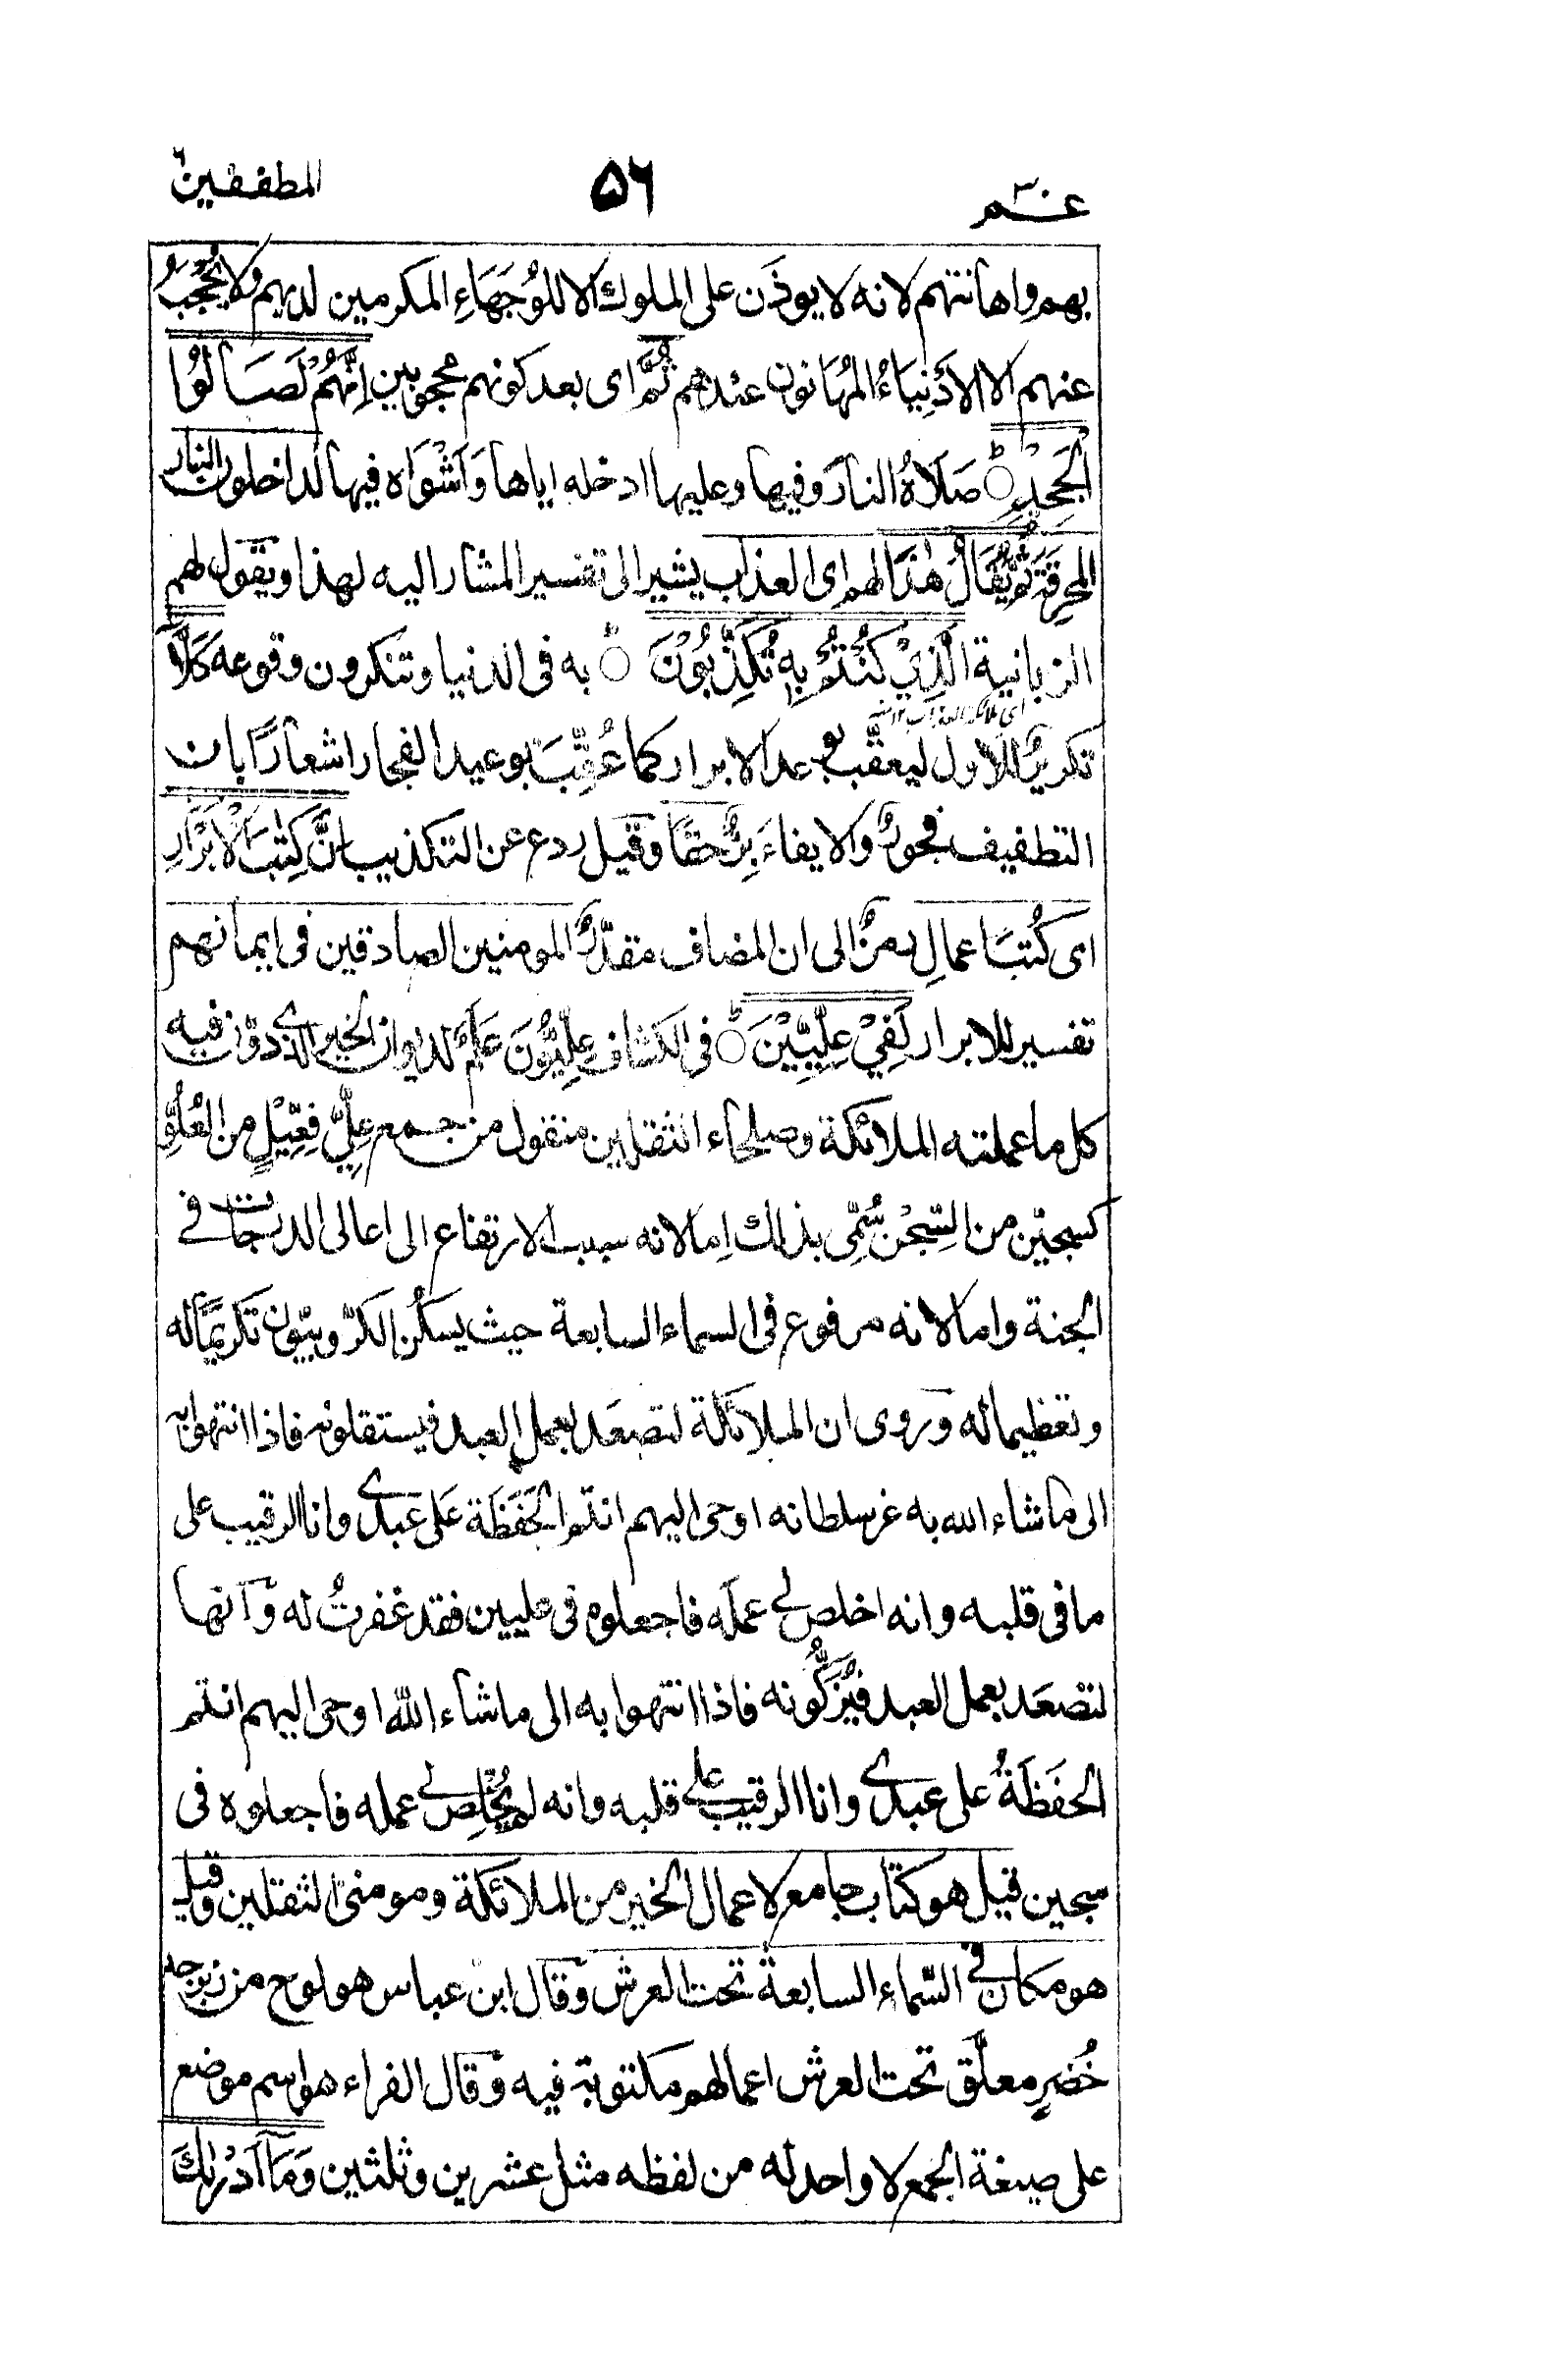 عـم ٥٦ المطففين
بهم واهانتهم لانه لا يوذن على الملوك الا للوُجَهَاءِ المكرمين لديهم ولا يُحْجَبُ
عنهم الا الاَدْنِيَاءُ المُهَانون عندهم ثُمَّ اى بعد كونهم محجوبين اِنَّهُمْ لَصَالُوا
الْجَحِيْمِ صَلَاهُ النارَ وفيها وعليها ادخله اياها وَاَشْوَاه فيها لداخلون النار
المحرقة ثُمَّ يُقَالُ هٰذَا لهم اى العذاب يشير الى تفسير المشار اليه لهذا ويقول لهم
الزبانية الَّذِيْ كُنْتُمْ بِهٖ تُكَذِّبُوْنَ به فى الدنيا وتنكرون وقوعه كَلَّآ
اى ملائكة العذاب ١٢
تكريرٌ للاول ليعقَّب بوعد الابرار كما عُقِّبَ بوعيد الفجار اشعارًا بان
التطفيف فجورٌ والايفاءَ بِرٌّ حقًّا وقيل ردع عن التكذيب اِنَّ كِتٰبَ الْاَبْرَارِ
اى كُتبَ اعمالِ يمرٌّ الى ان المضاف مقدَّرٌ المومنين الصادقين فى ايمانهم
تفسير للابرار لَفِيْ عِلِّيِّيْنَ فى الكشاف عِلِّيُّوْنَ عَلَم لديوان الخير الذى دوّن فيه
كل ما عملته الملائكة وصلحاء الثقلين منقول من جمع عِلِّيٍّ فِعِّيْلٍ من العُلُوِّ
كسجّين من السِّجْن سُمِّى بذلك اِما لانه سبب الارتفاع الى اعالى الدرجات فى
الجنة واما لانه مرفوع فى السماء السابعة حيث يسكُن الكرّوبيّون تكريمًا له
وتعظيما له وروى ان الملائكة لتصعَد بعمل العبد فيستقلونه فاذا انتهوا به
الى ما شاء الله به عز سلطانه اوحى اليهم انتم الحَفَظَة عَلى عبدى وانا الرقيب على
ما فى قلبه وانه اخلص لى عمَلَه فاجعلوه فى عليين فقد غفرتُ له وانها
لتصْعَد بعمل العبد فيُزَكُّونه فاذا انتهوا به الى ما شاء اللّٰه اوحى اليهم انتم
الحَفَظَةُ على عبدى وانا الرقيب على قلبه وانه لم يُخْلِص لى عمله فاجعلوه فى
سجين قيل هو كتاب جامع لاعمال الخير من الملائكة ومومنى الثقلين وقيل
هو مكان فى السَّماء السابعة تحت العرش وقال ابن عباس هو لوح من زبرجد
خُضْرٍ معلَّق تحت العرش اعمالهم مكتوبة فيه وقال الفراء هو اسم موضع
على صيغة الجمع لا واحد له من لفظه مثل عشرين وثلثين وَمَآ اَدْرٰىكَ